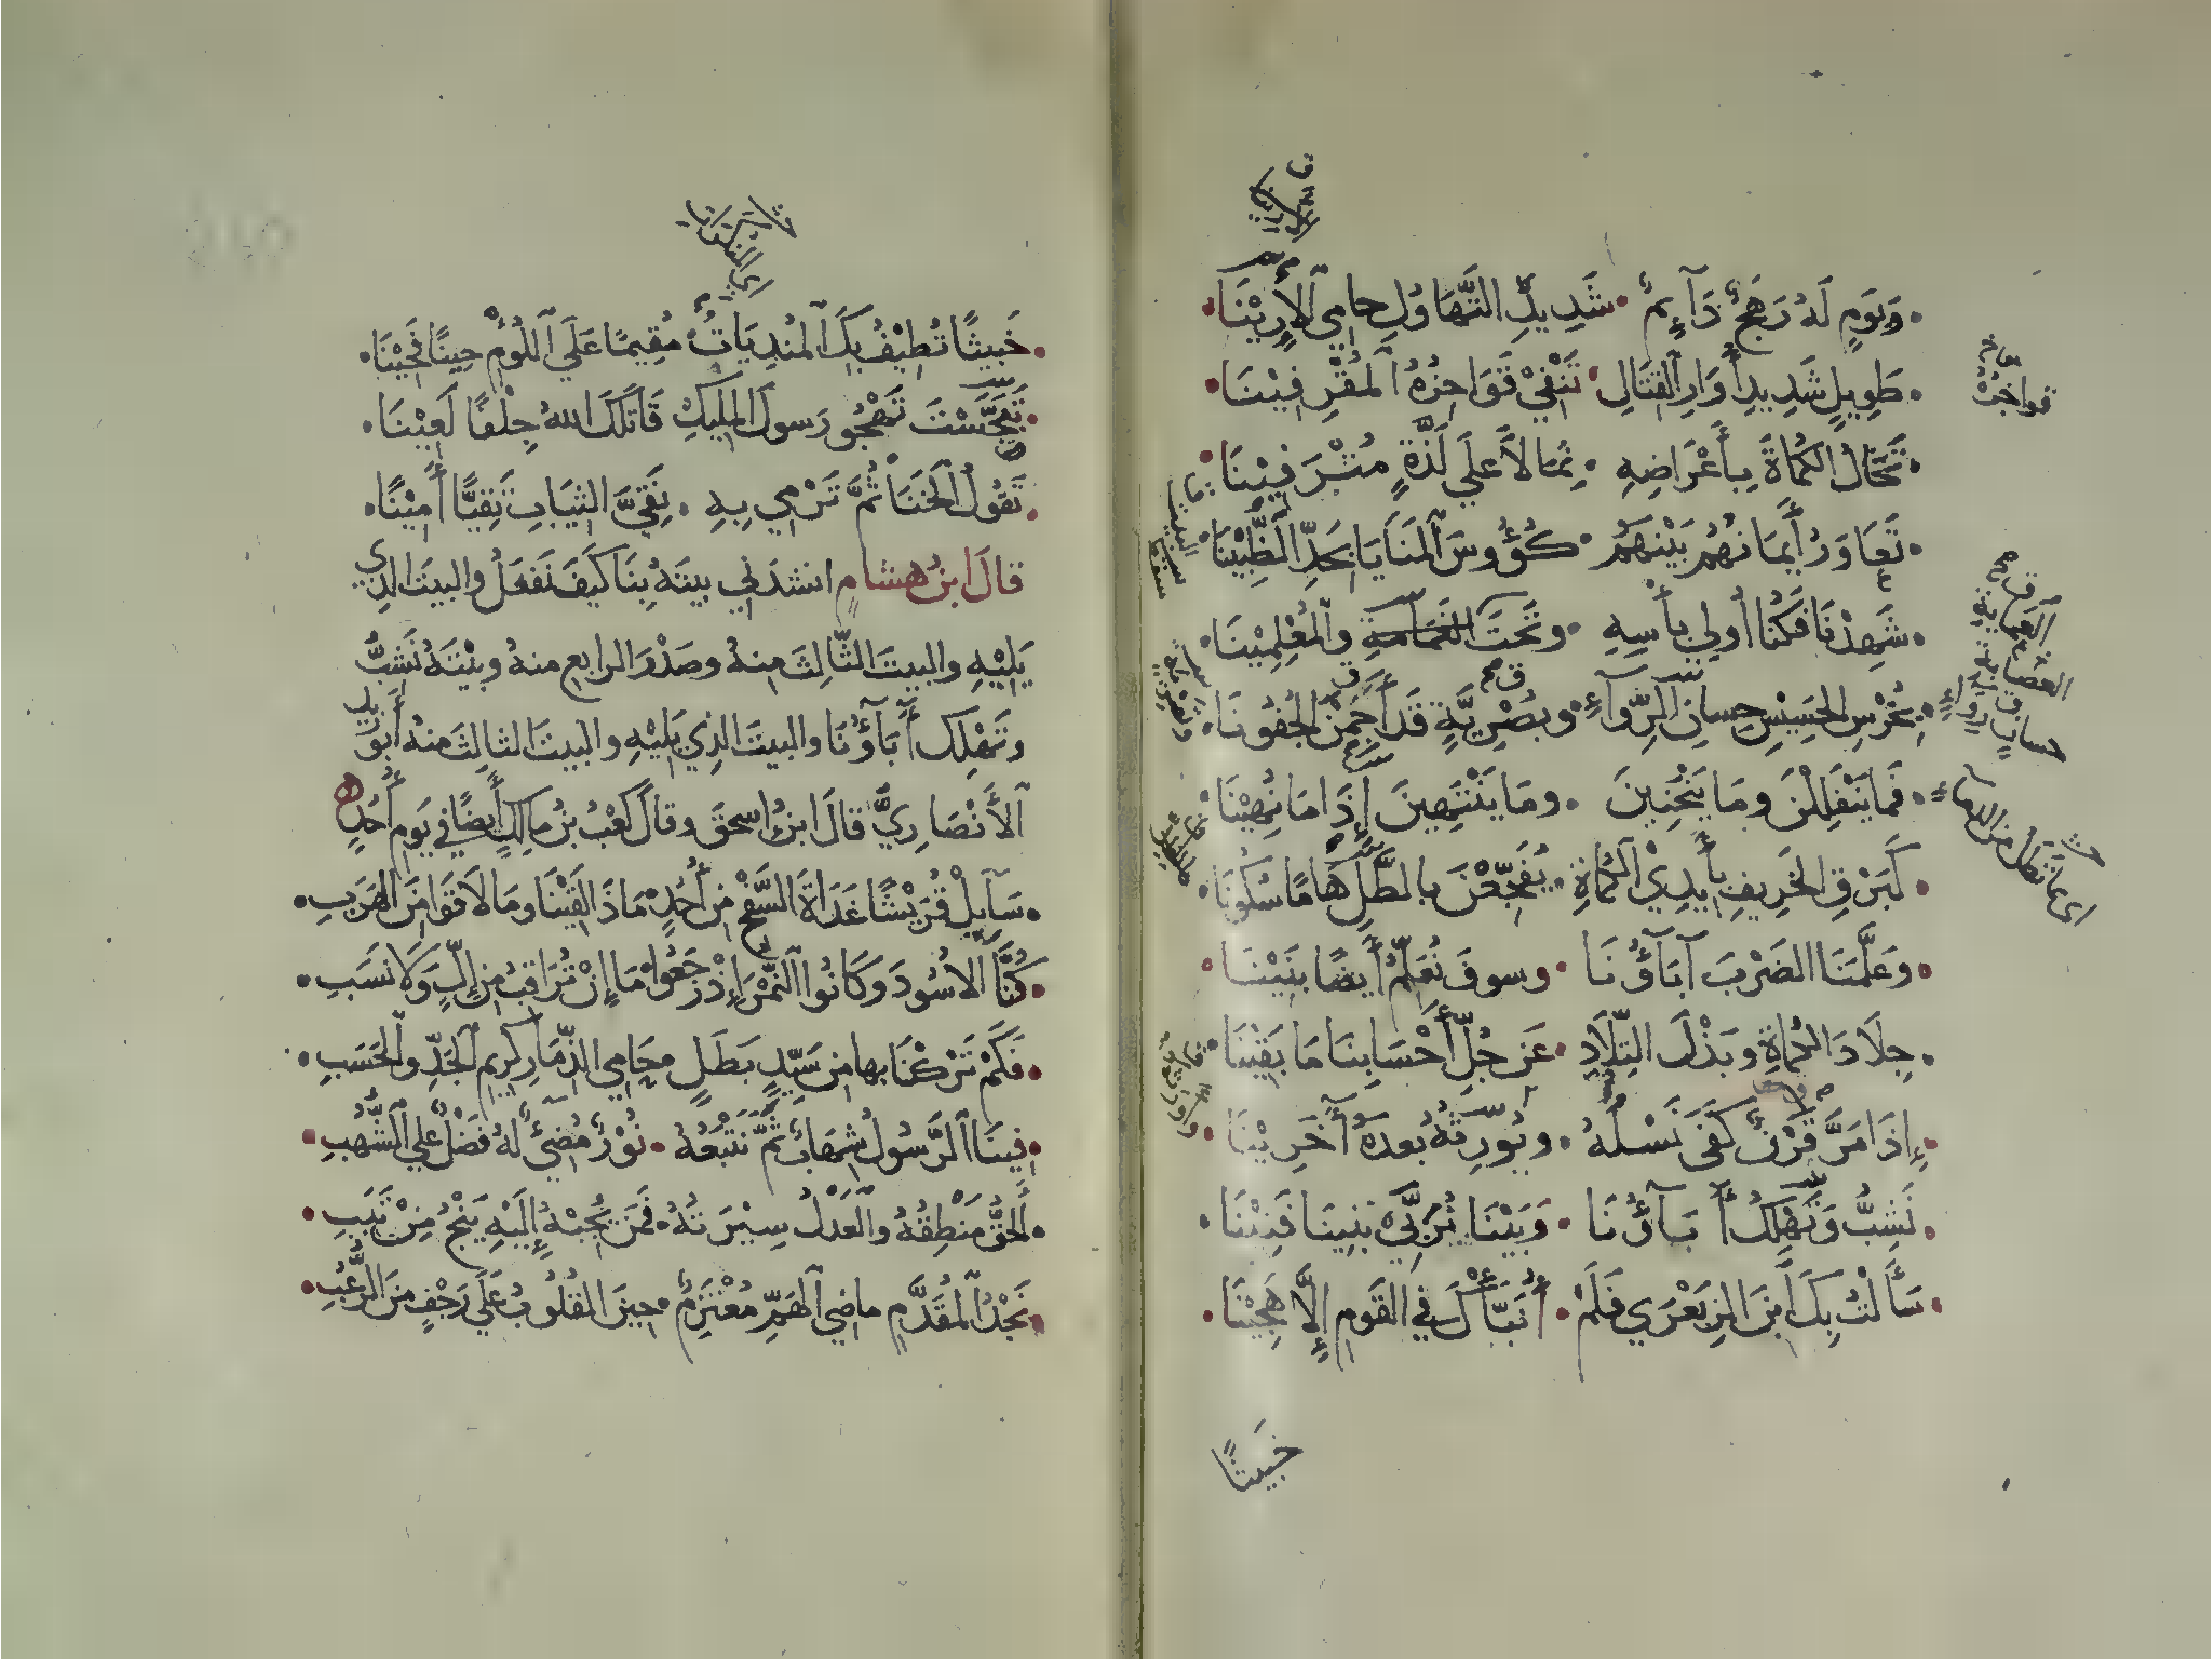 وَيَومٍ لَهُ رَهَجٌ دَآئِمٌ • شَدِيدِ التَّهَاوُلِ حامِي الأَرِيْنَا
طَوِيلٍ شَدِيدِ أُوَارِ القِتَالِ • تَنْفِيْ قَوَاحِزُهُ المُقْرِفِيْنَا
تَخَالُ الكُمَاةَ بِأَعْرَاضِهِ • ثِمَالاً عَلَي لَذَّةٍ مُنْزَفِيْنَا
تَعَاوَرُ أَيْمَانُهُم بَيْنَهُم • كُؤُوسَ المَنَايَا بِحَدِّ الظُّبِيْنَا
شَهِدْنَا فَكُنَّا أُولِي بَأْسِهِ • وتَحْتَ العَمَامةِ والمُعْلِمِيْنَا
بِخُرْسِ الحَسِيْسِ حِسانِ الرِّوآءِ • وبُصْرِيَّةٍ قَد أَجَمْنَ الجُفُونَا
فَما يَنْفَلِلْنَ ومَا يَنْحَنِينَ • ومَا يَنْتَهِينَ إِذَا مَا نُهِيْنَا
كَبَرْقِ الخَرِيفِ بأَيدِيْ الكُمَاةِ • يُفَجِّعْنَ بالطَّلِّ هَامًا سُكُونَا
وَعَلَّمَنَا الضَرْبَ آبَآؤُنَا • وسوفَ نُعَلِّمُ أَيضًا بَنِيْنَا
جِلَادَ الكُمَاةِ وبَذْلَ التِّلَادِ • عَن جُلِّ أَحْسَابِنَا مَا بَقِيْنَا
إِذَا مَرَّ قَرْنٌ كَفَى نَسْلُهُ • ويُوَرِثُهُ بعدَهُ آخَرِيْنَا
نَشِبُّ وَتَهْلِكُ آبَآؤُنَا • وَبَيْنَا نُرَبِّي بَنِينَا فَنِيْنَا
سَأَلْتُ بِكَ ابنَ الزِبَعْرَي فَلَمْ • أُنَبَّأْكَ في القَومِ إِلَّا هَجِيْنَا
خَبيثًا
خَبِيثًا تُطِيْفُ بِكَ المُنْدِيَاتُ مُقِيمًا عَلَي اللُؤْمِ حِينًا فَحِيْنَا
تَبَجَّسْتَ تَهْجُو رَسولَ المَلِيكِ قَاتَلَكَ اللهُ جِلْفًا لَعِيْنَا
تَقُولُ الخَنَا ثُمَّ تَرْمِي بِهِ • نَقِيَّ الثِيَابِ تَقِيًّا أَمِيْنًا
قالَ ابنُ هشامٍ انشدَنِي بيتَهُ بِنَا كَيفَ نَفعَلُ والبيتَ الذِي
يَلِيْهِ والبيتَ الثَّالِثَ مِنهُ وصَدْرَ الرابعِ منهُ وبيْتَهُ نَشِبُّ
وتَهْلِكُ أَبَآؤُنَا والبيتَ الذِي يَلِيْهِ والبيتَ الثالِثَ منهُ أَبُو زيدٍ
الأَنْصَارِيُّ قالَ ابنُ إسحقَ وقالَ كَعْبُ بنُ مالِكٍ أَيضًا في يَومِ أُحُدٍ
سَآيِلْ قُرَيْشًا غَدَاةَ السَّفْحِ مِن أُحُدٍ مَاذَا لَقِيْنَا ومَا لَاقَوا مِنَ الهَرَبِ
كُنَّا الأُسُودَ وكَانُوا النُمْرَ إِذْ زَحَفُوا مَا إِنْ نُرَاقِبُ مِن إِلٍّ وَلَا نَسَبِ
فَكَمْ تَرَكْنَا بِها مِن سَيِّدٍ بَطَلٍ حَامِي الذِّمَارِ كَرِيمِ الجَدِّ والحَسَبِ
فِينَا الرَّسُولُ شِهَابٌ ثُمَّ نَتْبَعُهُ • نُوْرٌ مُضِيءٌ لهُ فَضْلٌ عَلي الشُّهُبِ
الحَقُّ مَنْطِقُهُ والعَدْلُ سِيْرَتُهُ • فَمَن يُجِبْهُ إِلَيْهِ يَنْجُ مِنْ تَبَبِ
نَجْدُ المُقَدَّمِ ماضِي الهَمِّ مُعْتَزِمٌ • حِينَ القُلُوبُ عَلَي رَجْفٍ مِنَ الرُّعُبِ